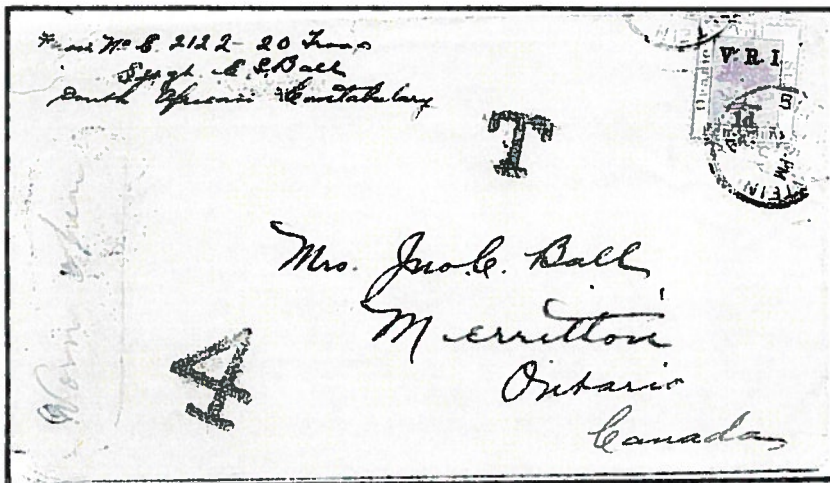 From No E. 2122 - 20 Troop
Sergt. E. E. Ball
South African Constabulary
V.R.I.
1d
T
Mrs. Jno. C. Ball
Merritton
Ontario
Canada
4